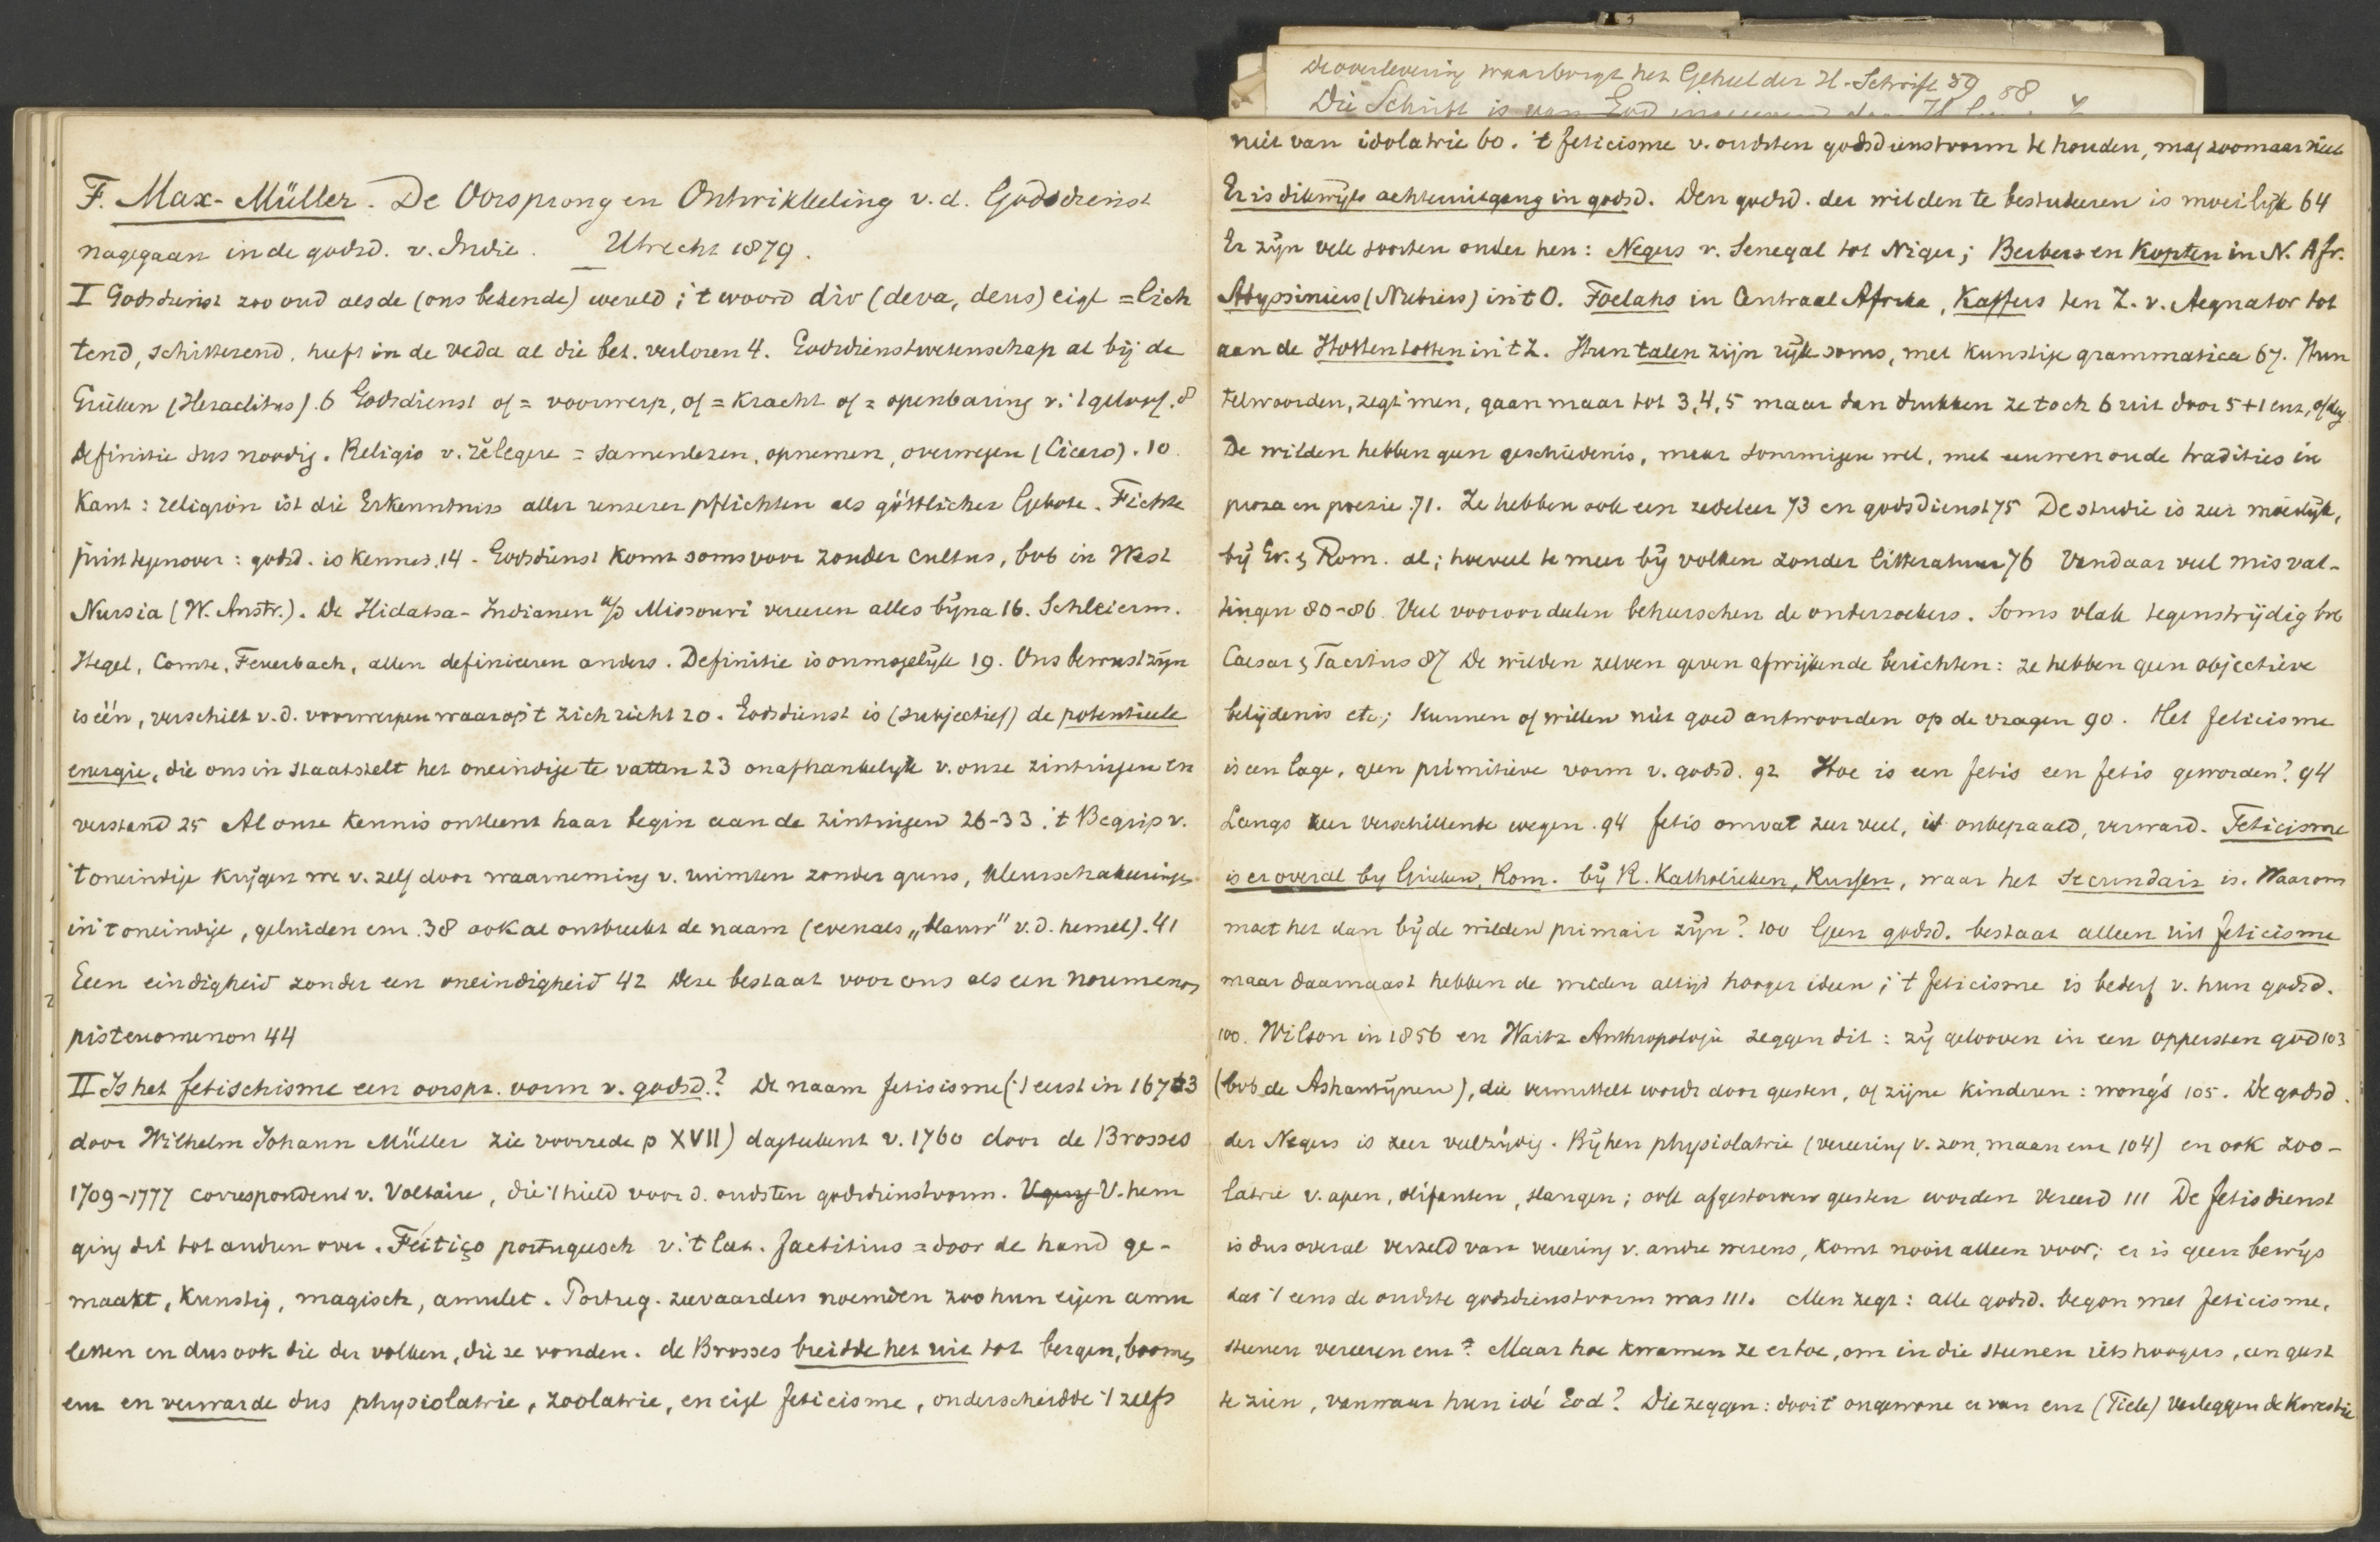 F. Max-Müller. De Oorsprong en Ontwikkeling v.d. Godsdienst
nagegaan in de godsd. v. Indie. Utrecht 1879.
I Godsdienst zoo oud als de (ons bekende) wereld; 't woord div (deva, deus) eigl = lich
tend, schitterend, heeft in de veda al die bet. verloren 4. Godsdienstwetenschap al bij de
Grieken (Heraclitus). 6 Godsdienst of = voorwerp, of = kracht of = openbaring v. 't geloof. 8
Definitie dus noodig. Religio v. rĕlegere = samenlezen, opnemen, overwegen (Cicero). 10
Kant: religion ist die Erkenntniss aller unserer pflichten als göttlicher Gebote. Fichte
juist tegenover: godsd. is kennis. 14. Godsdienst komt soms voor zonder cultus, bvb in West
Nursia (W. Austr.). De Hidatsa-Indianen a/d Missouri vereeren alles bijna 16. Schleierm.
Hegel, Comte, Feuerbach, allen definieeren anders. Definitie is onmogelijk 19. Ons bewustzijn
is één, verschilt v.d. voorwerpen waarop 't zich richt 20. Godsdienst is (subjectief) de potentieele
energie, die ons in staat stelt het oneindige te vatten 23 onafhankelijk v. onze zintuigen en
verstand 25 Al onze kennis ontleent haar begin aan de zintuigen 26-33. 't Begrip v.
't oneindige krijgen we v. zelf door waarneming v. ruimten zonder grens, kleurschakeeringen
in 't oneindige, geluiden enz. 38 ook al ontbreekt de naam (evenals „blauw" v.d. hemel). 41
Geen eindigheid zonder een oneindigheid 42 Deze bestaat voor ons als een noumenon
pisteuomenon 44
II Is het fetischisme een oorspr. vorm v. godsd.? De naam fetisisme ('t eerst in 1673
door Wilhelm Johann Müller zie voorrede p XVII) dagteekent v. 1760 door de Brosses
1709-1777 correspondent v. Voltaire, die 't hield voor d. oudsten godsdienstvorm. V. hem
ging dit tot andren over. Feitiço portugeesch v. 't lat. factitius = door de hand ge-
maakt, kunstig, magisch, amulet. Portug. zeevaarders noemden zoo hun eigen amu
letten en dus ook die der volken, die ze vonden. de Brosses breidde het uit tot bergen, boomen
enz en verwarde dus physiolatrie, zoolatrie, en eigl feticisme, onderscheidde 't zelfs
De overlevering waarborgt het Geheel der H-Schrift 89 88
Die Schrift is van God
niet van idolatrie 60. 't feticisme v. oudsten godsdienstvorm te houden, mag zoomaar niet
Er is dikwijls achteruitgang in godsd. Den godsd. der wilden te bestudeeren is moeilijk 64
Er zijn vele soorten onder hen: Negers v. Senegal tot Niger; Berbers en Kopten in N. Afr.
Abyssiniers (Nubiers) in 't O. Foelahs in Centraal Afrika, Kaffers ten Z. v. Aequator tot
aan de Hottentotten in 't Z. Hun talen zijn rijk soms, met kunstige grammatica 67. Hun
telwoorden, zegt men, gaan maar tot 3, 4, 5 maar dan drukken ze toch 6 uit door 5+1 enz,
De wilden hebben geen geschiedenis, maar sommigen wel, met eeuwenoude tradities in
proza en poezie. 71. Ze hebben ook een zedeleer 73 en godsdienst 75 De studie is zeer moeilijk,
bij Gr. & Rom. al; hoeveel te meer bij volken zonder litteratuur 76 Vandaar veel misvat-
tingen 80-86. Veel vooroordeelen beheerschen de onderzoekers. Soms vlak tegenstrijdig bvb
Caesar & Tacitus 87 De wilden zelven geven afwijkende berichten: ze hebben geen objectieve
belijdenis etc; kunnen of willen niet goed antwoorden op de vragen 90. Het feticisme
is een lage, geen primitieve vorm v. godsd. 92 Hoe is een fetis een fetis geworden? 94
Langs zeer verschillende wegen. 94 fetis omvat zeer veel, is onbepaald, verward. Feticisme
is er overal by Grieken, Rom. bij R. Katholieken, Russen, waar het secundair is. Waarom
moet het dan bij de wilden primair zijn? 100 Geen godsd. bestaat alleen uit feticisme
maar daarnaast hebben de wilden altijd hooger ideen; 't feticisme is bederf v. hun godsd.
100. Wilson in 1856 en Waitz Anthropologie zeggen dit: zij gelooven in een oppersten god 103
(bvb de Ashantijnen), die vermittelt wordt door geesten, of zijne kinderen: wong's 105. De godsd.
der Negers is zeer veelzijdig. Bij hen physiolatrie (vereering v. zon, maan enz 104) en ook zoo-
latrie v. apen, olifanten, slangen; ook afgestorven geesten worden vereerd 111 De fetisdienst
is dus overal verzeld van vereering v. andre wezens, komt nooit alleen voor; er is geen bewijs
dat 't eens de oudste godsdienstvorm was 111. Men zegt: alle godsd. begon met feticisme,
steenen vereeren enz? Maar hoe kwamen ze ertoe, om in die steenen iets hoogers, een geest
te zien, vanwaar hun idé God? Die zeggen: door 't ongewone ervan enz (Tiele) verleggen de kwestie